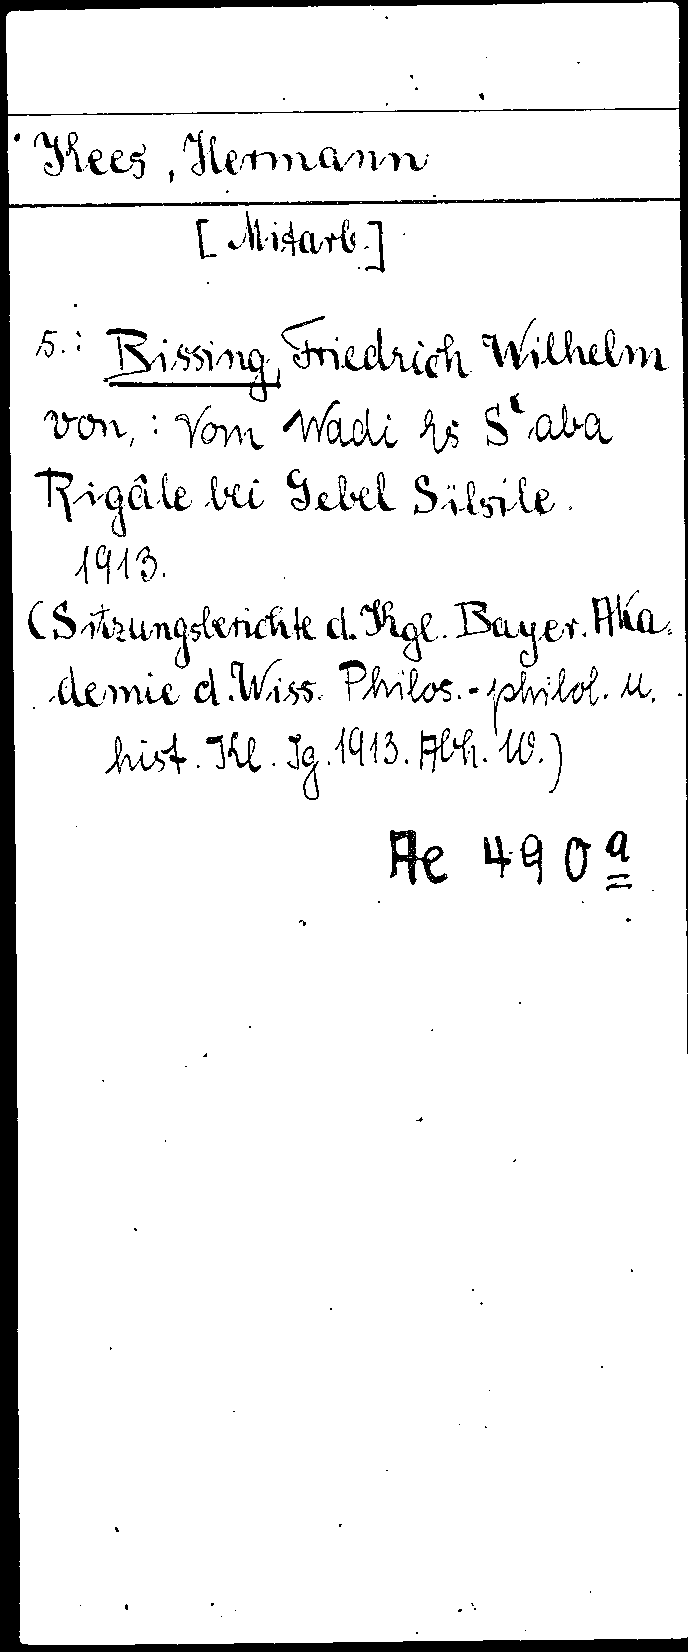 Kees, Hermann
[Mitarb.]
s.: Bissing, Friedrich Wilhelm
von,: Vom Wadi Es Sʿaba
Rigâle bei Gebel Silsile.
1913.
(Sitzungsberichte d. Kgl. Bayer. Aka-
demie d. Wiss. Philos.-philol. u.
hist. Kl. Jg. 1913. Abh. 10.)
Ae 490 a